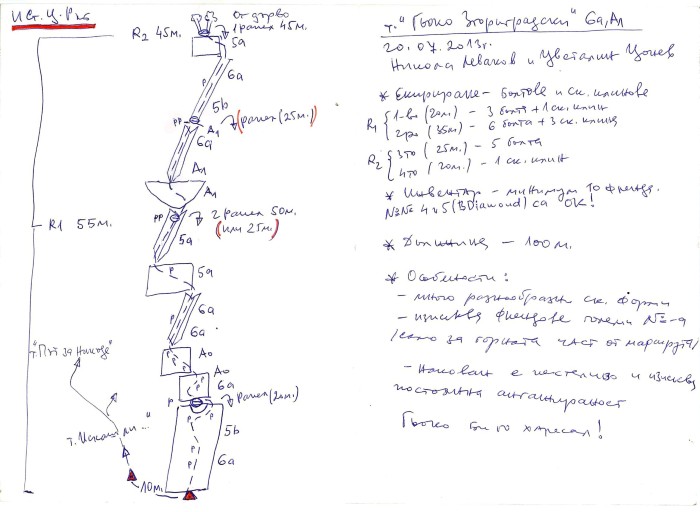 Ист. Ц. Рид
R2 45м.
От дърво
1 рапел 45м.
5а
Р
6а
5b
РР
А1
рапел (25м.)
6а
А1
А1
R1 55м.
РР
2 рапел 50м.
(или 25м.)
5а
Р
5а
Р
6а
6а
А0
Р
Р
А0
6а
Р
Р
Р
рапел (20м.)
т."Път за никъде"
Р
Р
5b
т."Искаш ли..."
Р
Р
6а
10м.
т." Гошко Згориградски" 6а, А1
20.07.2013г.
Никола Леваков и Цветалин Цонев
* Екипиране - болтове и ск. клинове
R1 { 1-во (20м.) - 3 болта + 1 ск. клин
2ро (35м.) - 6 болта + 3 ск. клина
R2 { 3то (25м.) - 5 болта
4то (20м.) - 1 ск. клин
* Инвентар - минимум 10 френда.
№№ 4 и 5 (BDiamond) са ОК!
* Дължина - 100м.
* Особености:
- много разнообразни ск. форми
- изисква френдове големи №-а
/само за горната част от маршрута/
- и изисква
постоянна ангажираност
Гошко би го харесал!